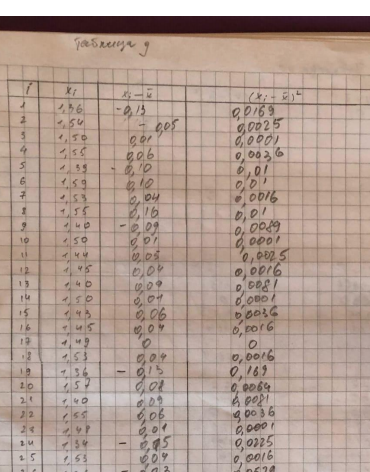 Таблица 9
i xi xi - x̄ (xi - x̄)²
1 1,36 -0,13 0,0169
2 1,54 - 0,05 0,0025
3 1,50 0,01 0,0001
4 1,55 0,06 0,0036
5 1,39 - 0,10 0,01
6 1,59 0,10 0,01
7 1,53 0,04 0,0016
8 1,55 0,16 0,01
9 1,40 -0,09 0,0089
10 1,50 0,01 0,0001
11 1,44 0,05 0,0025
12 1,45 0,04 0,0016
13 1,40 0,09 0,0081
14 1,50 0,01 0,0001
15 1,43 0,06 0,0036
16 1,45 0,04 0,0016
17 1,49 0 0
18 1,53 0,04 0,0016
19 1,36 - 0,13 0,169
20 1,57 0,08 0,0064
21 1,40 0,09 0,0081
22 1,55 0,06 0,0036
23 1,48 0,01 0,0001
24 1,34 - 0,15 0,0225
25 1,53 0,04 0,0016